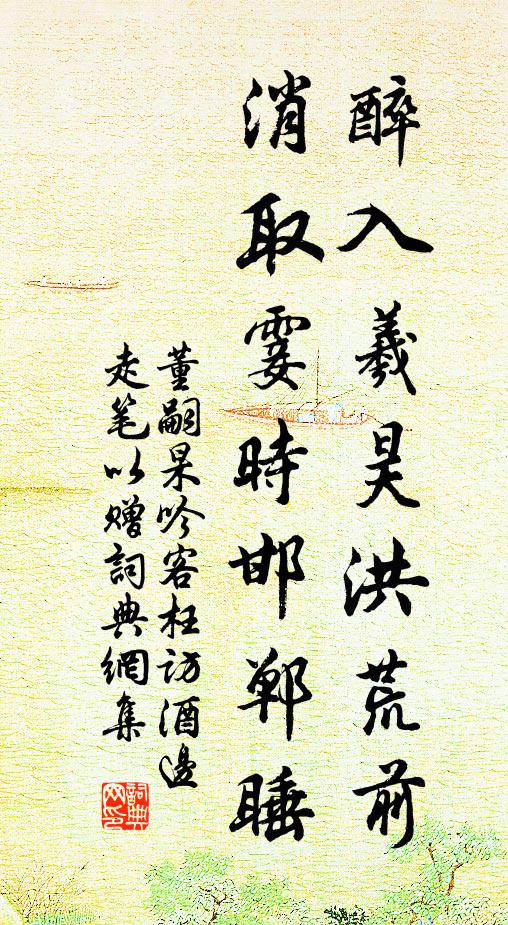 醉入羲昊洪荒前
消取霎時邯鄲睡
董嗣杲吟客枉访酒邊
走笔以赠詞典網集
詞典
网印